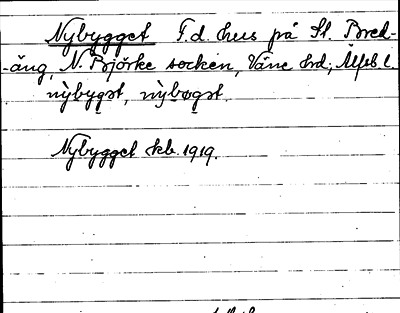 Nybygget F.d. hus på St. Bred-
-äng, N. Björke socken, Väne hrd; Älfsb l.
nỳbygət, nỳbogət.
Nybygget kb. 1919.